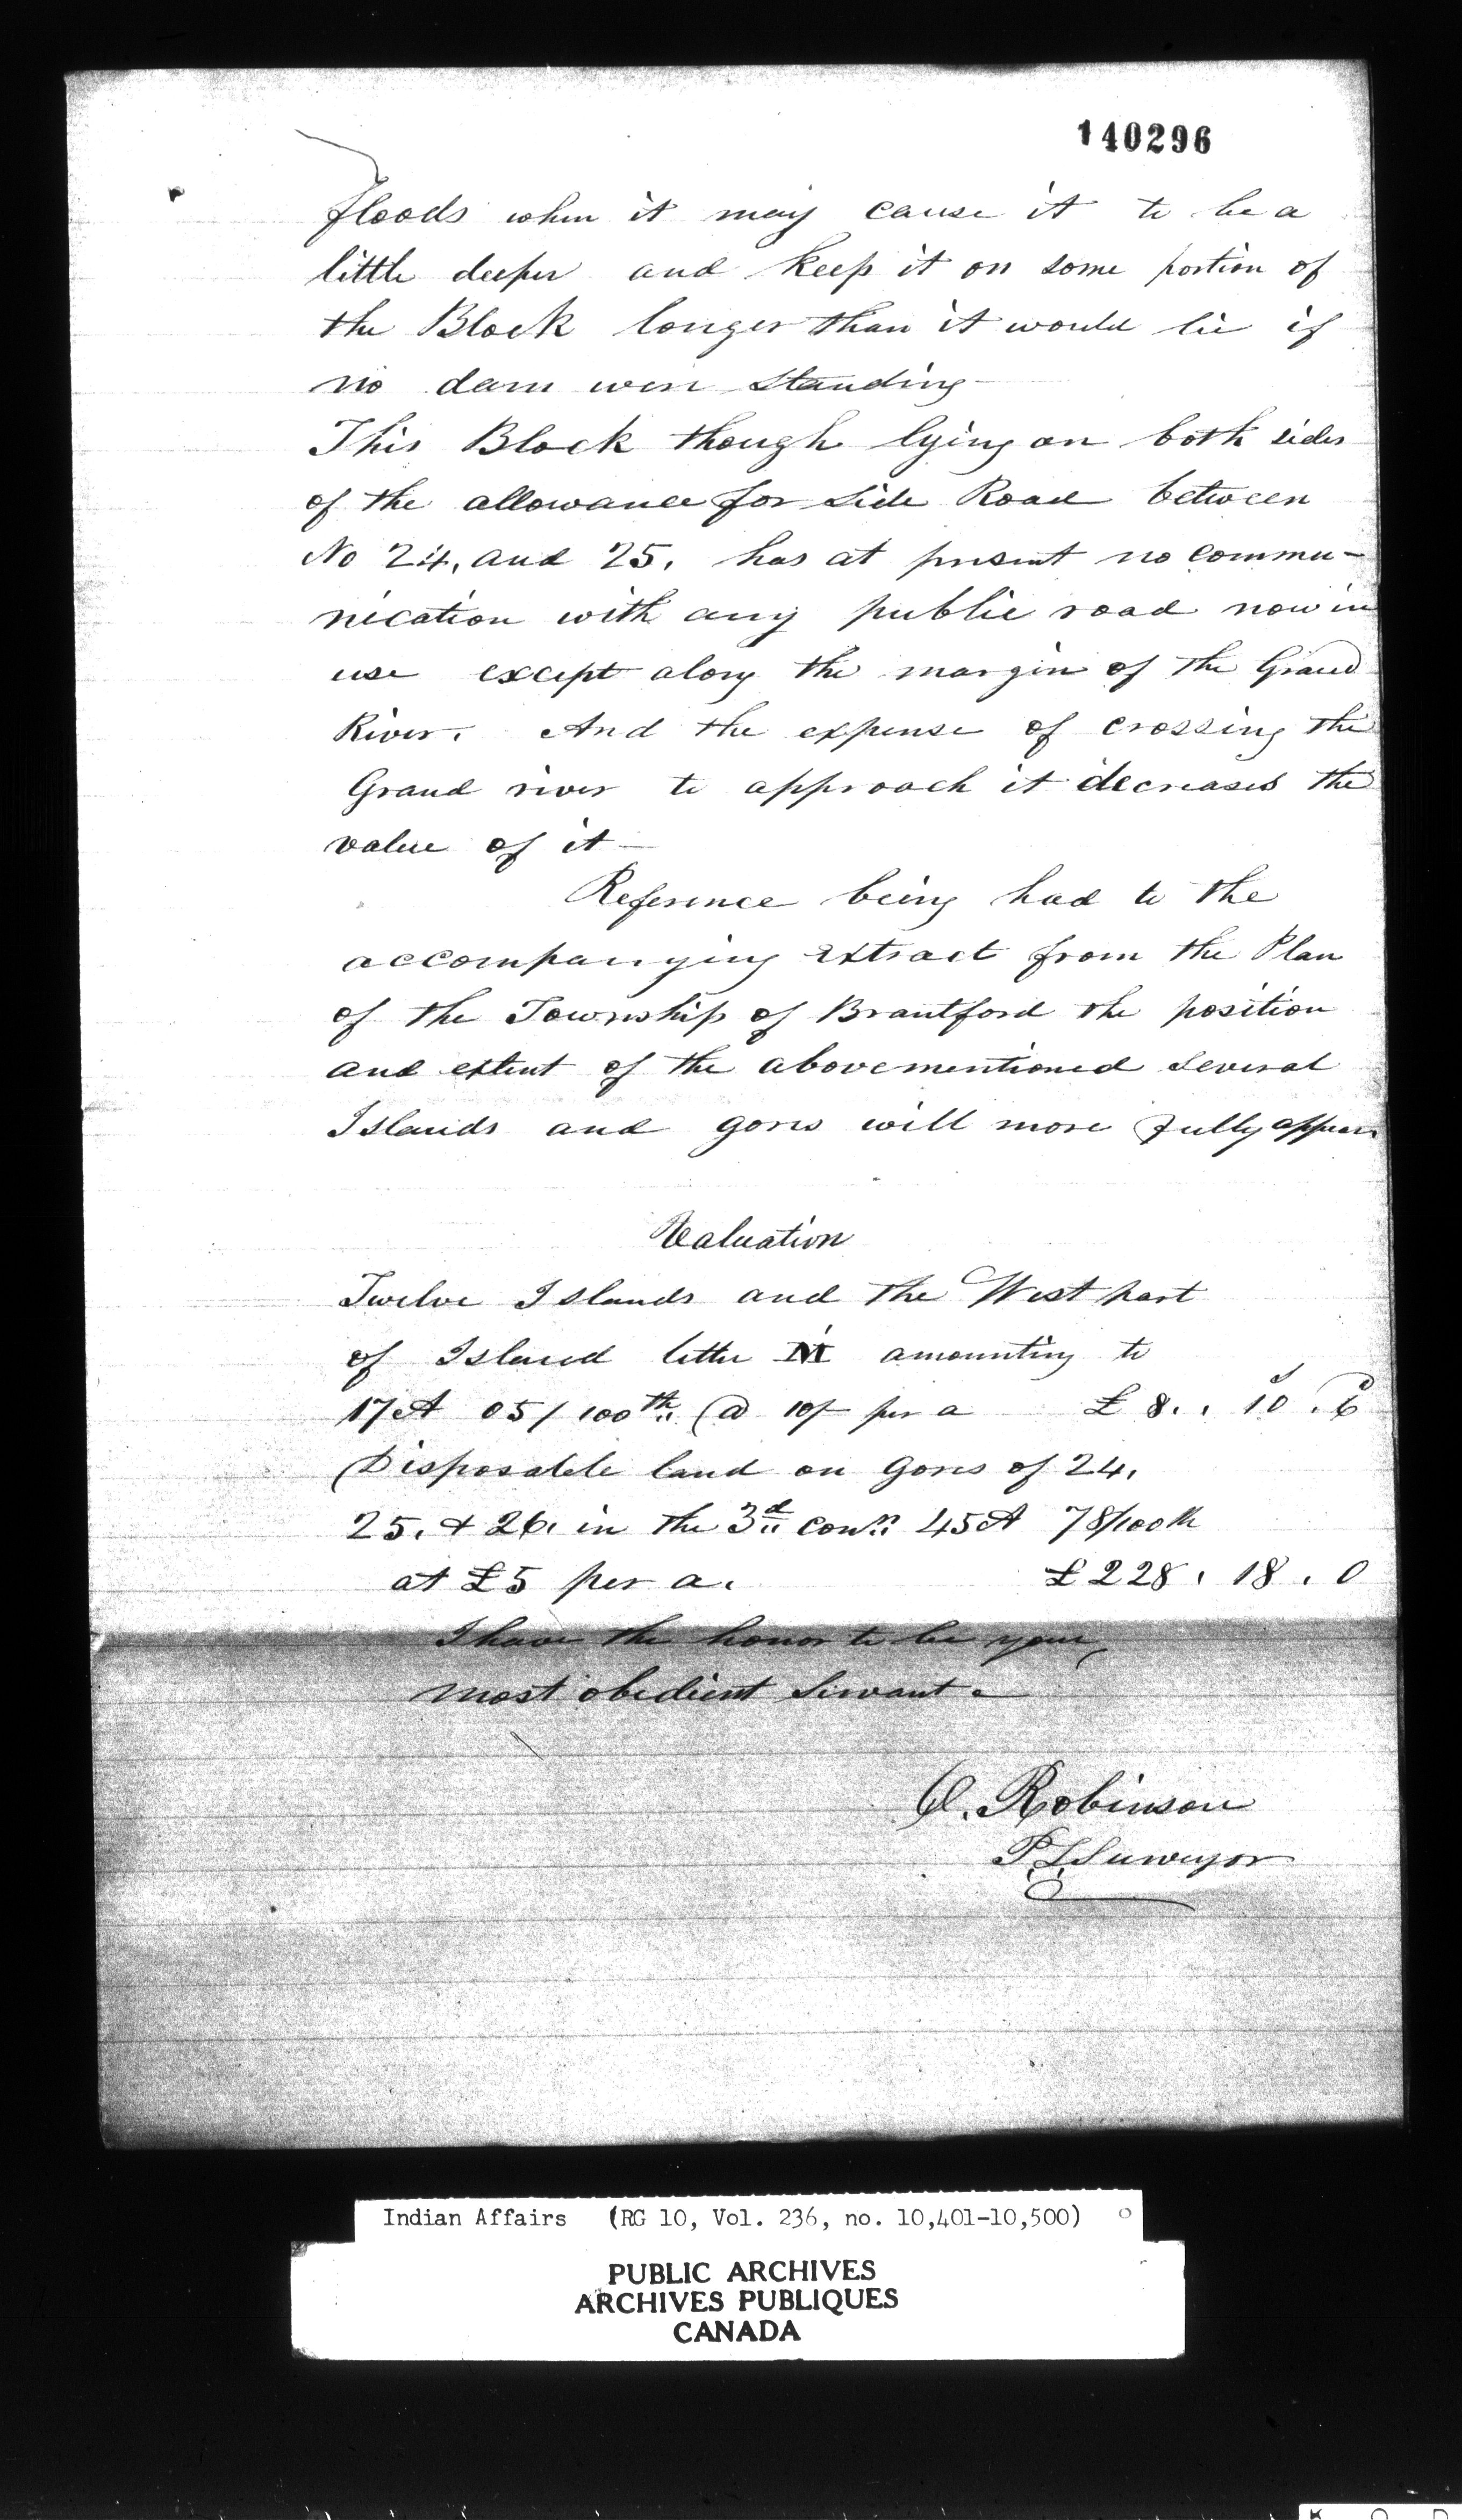 140296
floods when it may cause it to be a
little deeper and keep it on some portion of
the Block longer than it would lie if
no dam were standing —
This Block though lying on both sides
of the allowance for Side Road between
No 24, and 25, has at present no commu-
nication with any public road now in
use except along the margin of the Grand
River. And the expense of crossing the
Grand river to approach it decreases the
value of it —
Reference being had to the
accompanying extract from the Plan
of the Township of Brantford the position
and extent of the abovementioned several
Islands and gores will more fully appear
Valuation
Twelve Islands and the West part
of Island letter M amounting to
17 A 05/100th @ 10/- per a £ 8.. 10. 6
Disposable land on gores of 24,
25, & 26, in the 3d conn 45 A 78/100th
at £5 per a. £ 228. 18. 0
I have the honor to be your,
most obedient Servant.
Robinson
P L Surveyor
Indian Affairs (RG 10, Vol. 236, no. 10,401-10,500)
PUBLIC ARCHIVES
ARCHIVES PUBLIQUES
CANADA